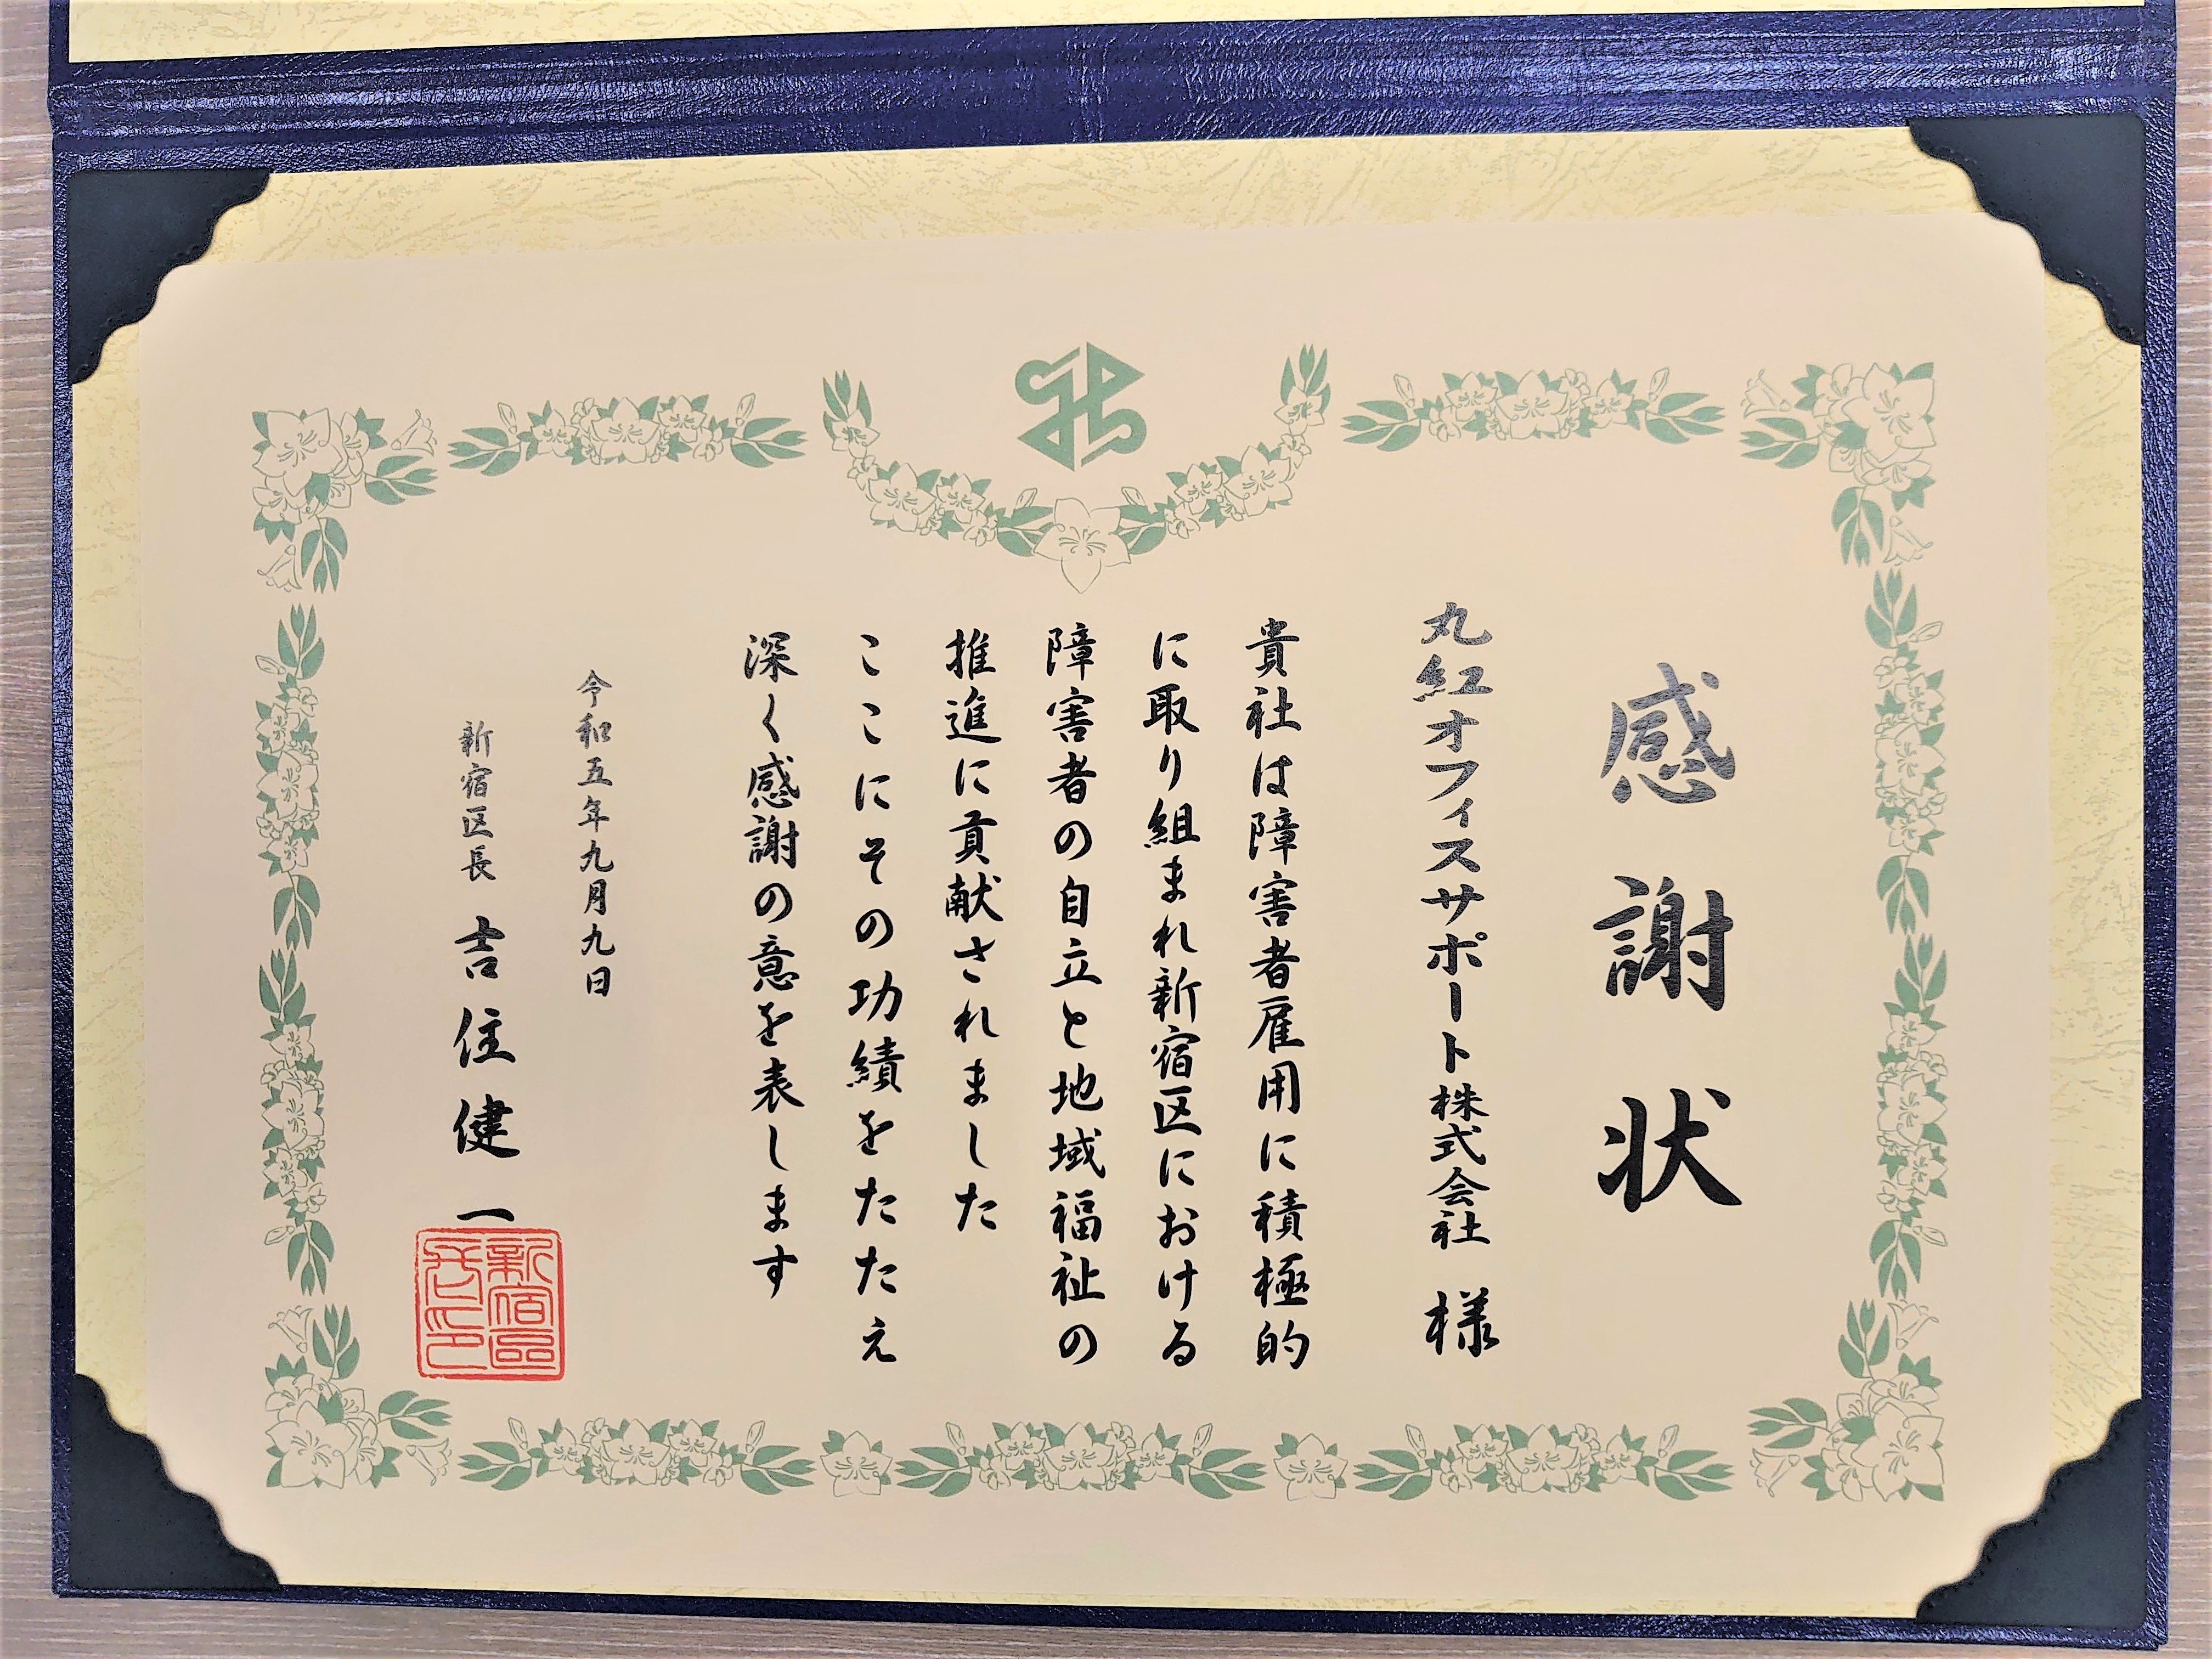 感謝状
丸紅オフィスサポート株式会社 様
貴社は障害者雇用に積極的
に取り組まれ新宿区における
障害者の自立と地域福祉の
推進に貢献されました
ここにその功績をたたえ
深く感謝の意を表します
令和五年九月九日
新宿区長 吉住健一
新宿區
長之印